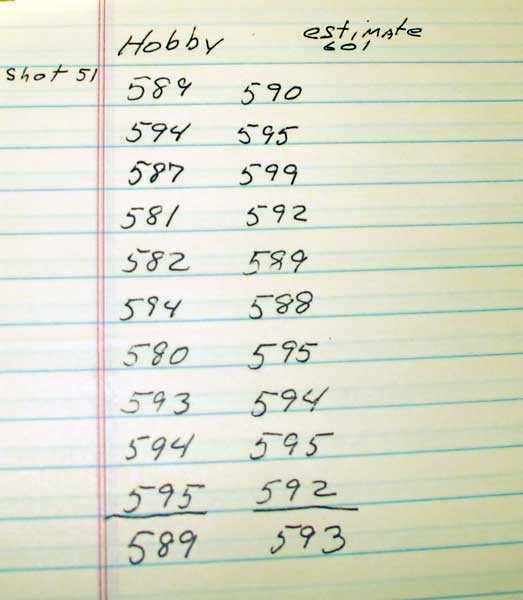 Hobby estimate
601
Shot 51 589 590
594 595
587 599
581 592
582 589
594 588
580 595
593 594
594 595
595 592
589 593